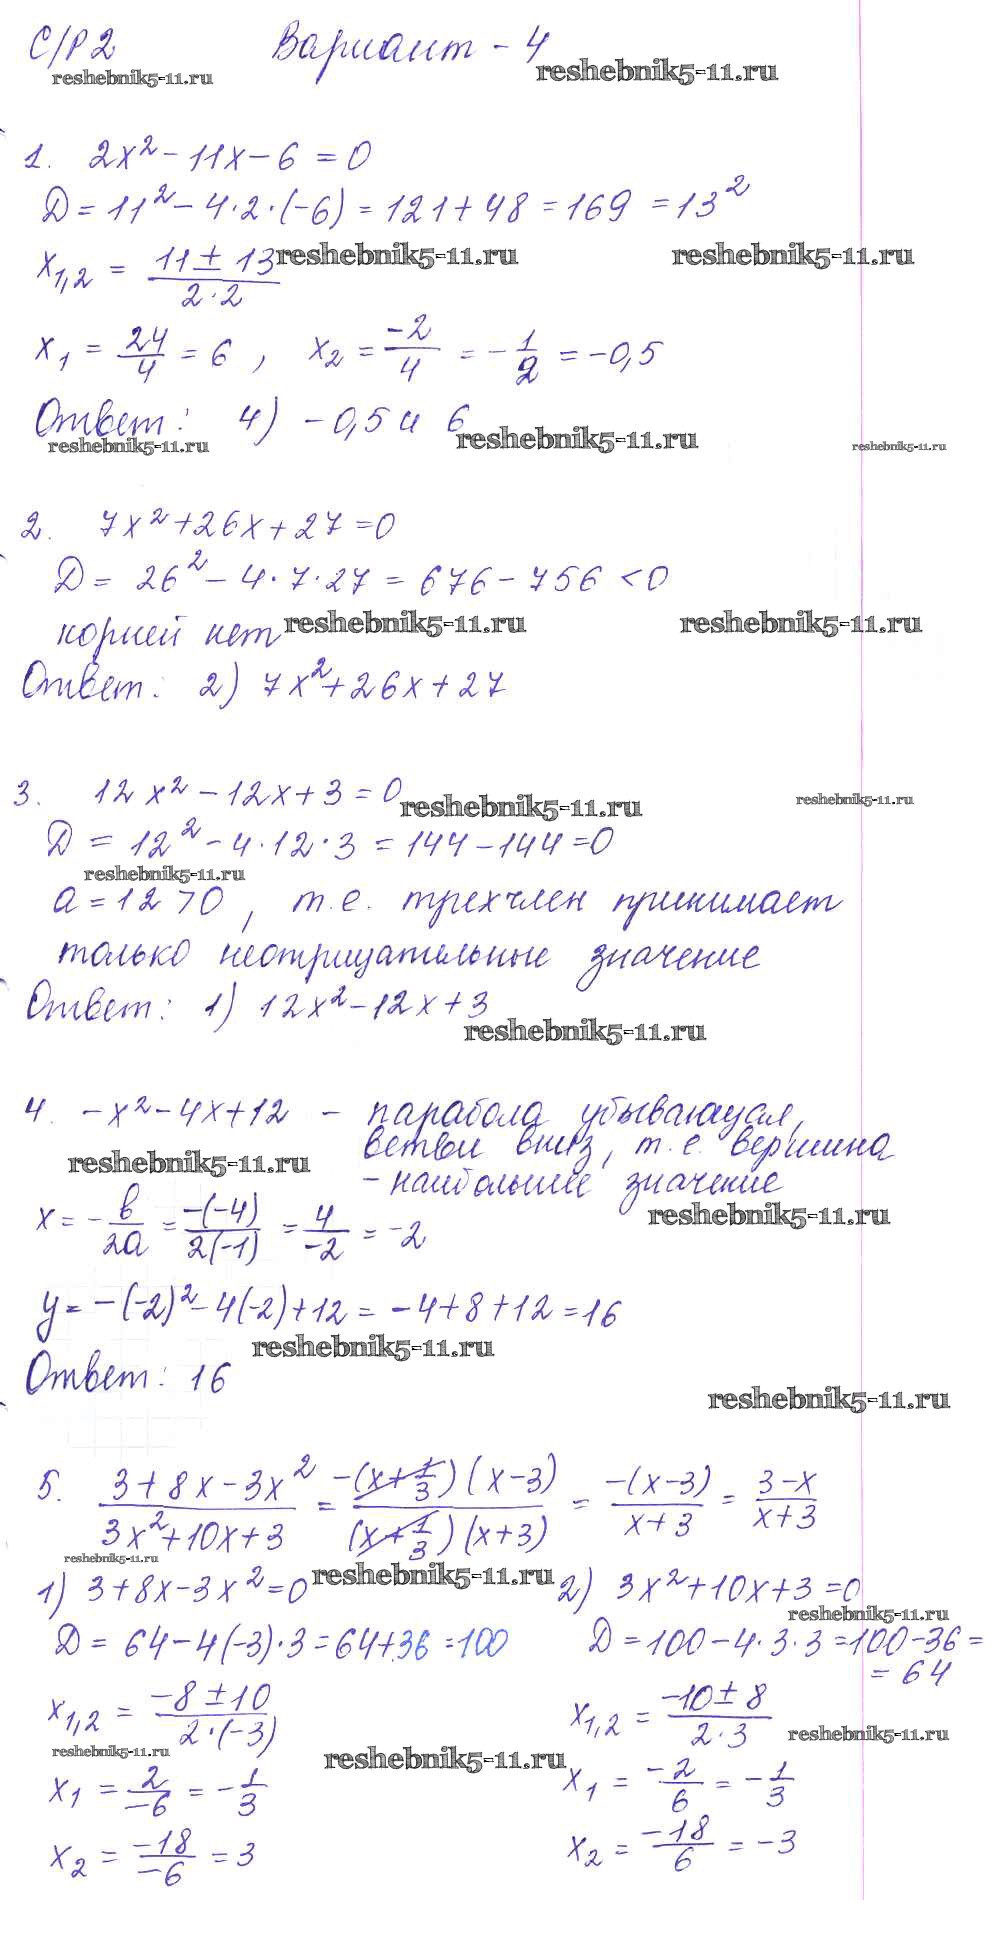 С/Р 2 Вариант - 4
reshebnik5-11.ru reshebnik5-11.ru
1. 2x² - 11x - 6 = 0
Д = 11² - 4·2·(-6) = 121 + 48 = 169 = 13²
x₁,₂ = (11 ± 13)/(2·2) reshebnik5-11.ru reshebnik5-11.ru
x₁ = 24/4 = 6 , x₂ = -2/4 = -1/2 = -0,5
Ответ: 4) -0,5 и 6
reshebnik5-11.ru reshebnik5-11.ru reshebnik5-11.ru
2. 7x² + 26x + 27 = 0
Д = 26² - 4·7·27 = 676 - 756 < 0
корней нет reshebnik5-11.ru reshebnik5-11.ru
Ответ: 2) 7x² + 26x + 27
3. 12x² - 12x + 3 = 0 reshebnik5-11.ru reshebnik5-11.ru
Д = 12² - 4·12·3 = 144 - 144 = 0
reshebnik5-11.ru
a = 12 > 0 , т.е. трехчлен принимает
только неотрицательные значение
Ответ: 1) 12x² - 12x + 3
reshebnik5-11.ru
4. -x² - 4x + 12 - парабола убывающая,
ветви вниз, т.е. вершина
reshebnik5-11.ru - наибольшее значение
reshebnik5-11.ru
x = -в/2a = -(-4)/2(-1) = 4/-2 = -2
y = -(-2)² - 4(-2) + 12 = -4 + 8 + 12 = 16
reshebnik5-11.ru
Ответ: 16
reshebnik5-11.ru
5. (3 + 8x - 3x²)/(3x² + 10x + 3) = -(x + 1/3)(x - 3)/(x + 1/3)(x + 3) = -(x - 3)/(x + 3) = (3 - x)/(x + 3)
reshebnik5-11.ru reshebnik5-11.ru
1) 3 + 8x - 3x² = 0 2) 3x² + 10x + 3 = 0
reshebnik5-11.ru
Д = 64 - 4(-3)·3 = 64 + 36 = 100 Д = 100 - 4·3·3 = 100 - 36 =
= 64
x₁,₂ = (-8 ± 10)/(2·(-3)) x₁,₂ = (-10 ± 8)/(2·3)
reshebnik5-11.ru reshebnik5-11.ru reshebnik5-11.ru
x₁ = 2/-6 = -1/3 x₁ = -2/6 = -1/3
x₂ = -18/-6 = 3 x₂ = -18/6 = -3